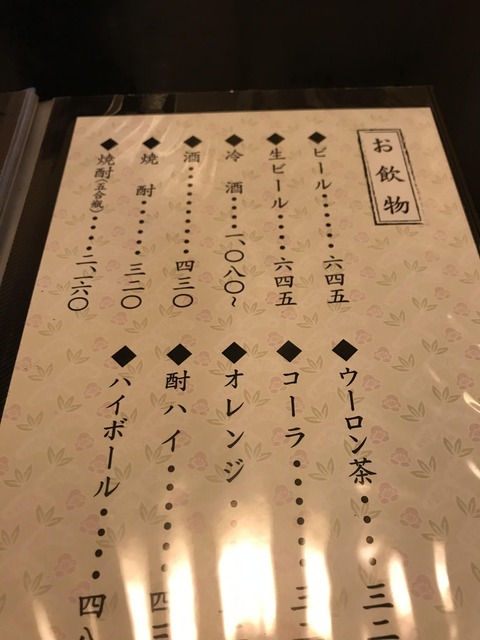 お飲物
◆ビール・・・・・・六四五
◆生ビール・・・・六四五
◆冷 酒・・・・一、〇八〇～
◆酒・・・・・・・・・四三〇
◆焼 酎・・・・・・三二〇
◆焼酎(五合瓶)・・・・二、一六〇
◆ウーロン茶・・・・三二
◆コーラ・・・・・・三二
◆オレンジ・・・・
◆酎ハイ・・・・・・四三
◆ハイボール・・・・四八